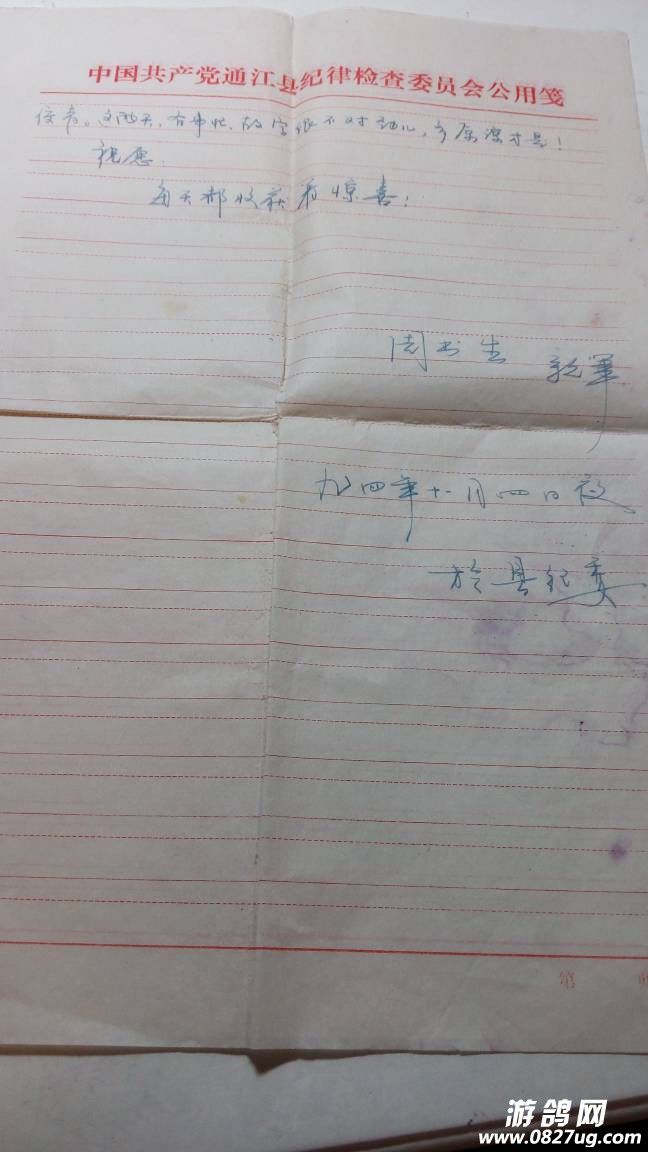 中国共产党通江县纪律检查委员会公用笺
佳音。这两天,有事忙,故字很不对劲儿,多原谅才是!
祝愿
每天都收获着惊喜!
周书生 
九四年十一月四日夜
于县纪委
第
游鸽网
www.0827ug.com